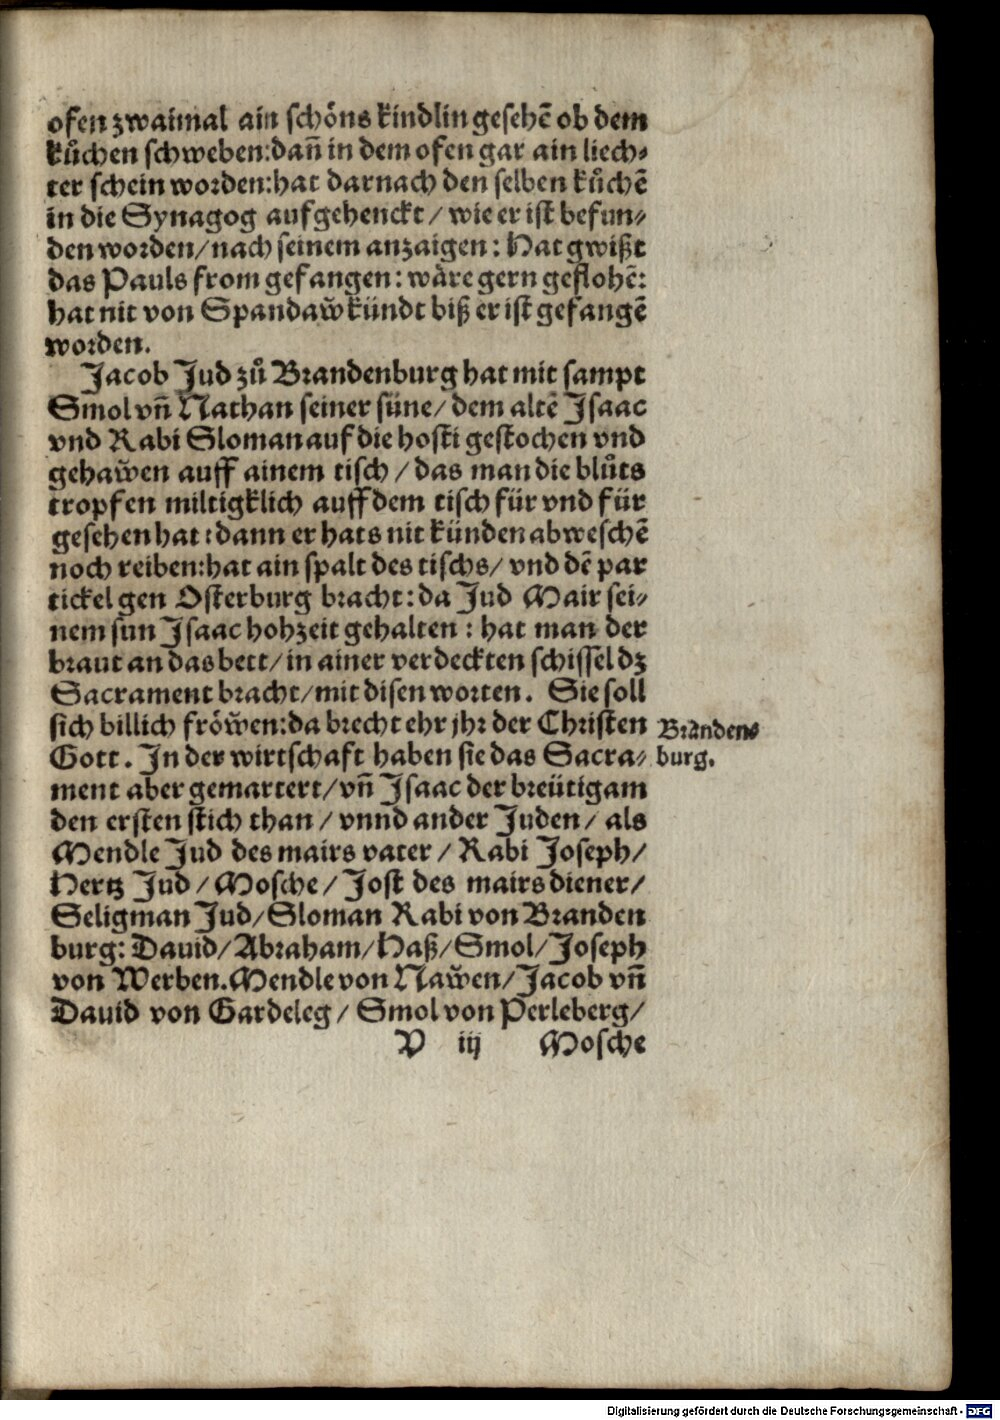 ofen zwaimal ain schöns kindlin gesehē ob dem
kůchen schweben:dañ in dem ofen gar ain liech⸗
ter schein worden:hat darnach den selben kůchē
in die Synagog aufgehenckt/ wie er ist befun⸗
den worden/nach seinem anzaigen: Hat gwißt
das Pauls from gefangen: wäre gern geflohē:
hat nit von Spandaw̆ kündt biß er ist gefangē
worden.
Jacob Jud zů Brandenburg hat mit sampt
Smol vñ Nathan seiner süne/ dem altē Isaac
vnd Rabi Sloman auf die hosti gestochen vnd
gehaw̆en auff ainem tisch / das man die blůts
tropfen miltigklich auff dem tisch für vnd für
gesehen hat:dann er hats nit künden abweschē
noch reiben:hat ain spalt des tischs/ vnd dē par
tickel gen Osterburg bracht:da Jud Mair sei⸗
nem sun Isaac hohzeit gehalten : hat man der
braut an das bett/in ainer verdeckten schissel dz
Sacrament bracht/mit disen worten. Sie soll
sich billich fröw̆en:da brecht ehr jhr der Christen
Gott. In der wirtschaft haben sie das Sacra⸗
ment aber gemartert/vñ Isaac der breütigam
den ersten stich than / vnnd ander Juden/ als
Mendle Jud des mairs vater / Rabi Joseph/
Hertz Jud / Mosche / Jost des mairs diener/
Seligman Jud/Sloman Rabi von Branden
burg: Dauid/Abraham/Haß/Smol/Joseph
von Werben.Mendle von Naw̆en/Jacob vñ
Dauid von Gardeleg / Smol von Perleberg/
V iij Mosche
Branden⸗
burg.
Digitalisierung gefördert durch die Deutsche Forschungsgemeinschaft - DFG